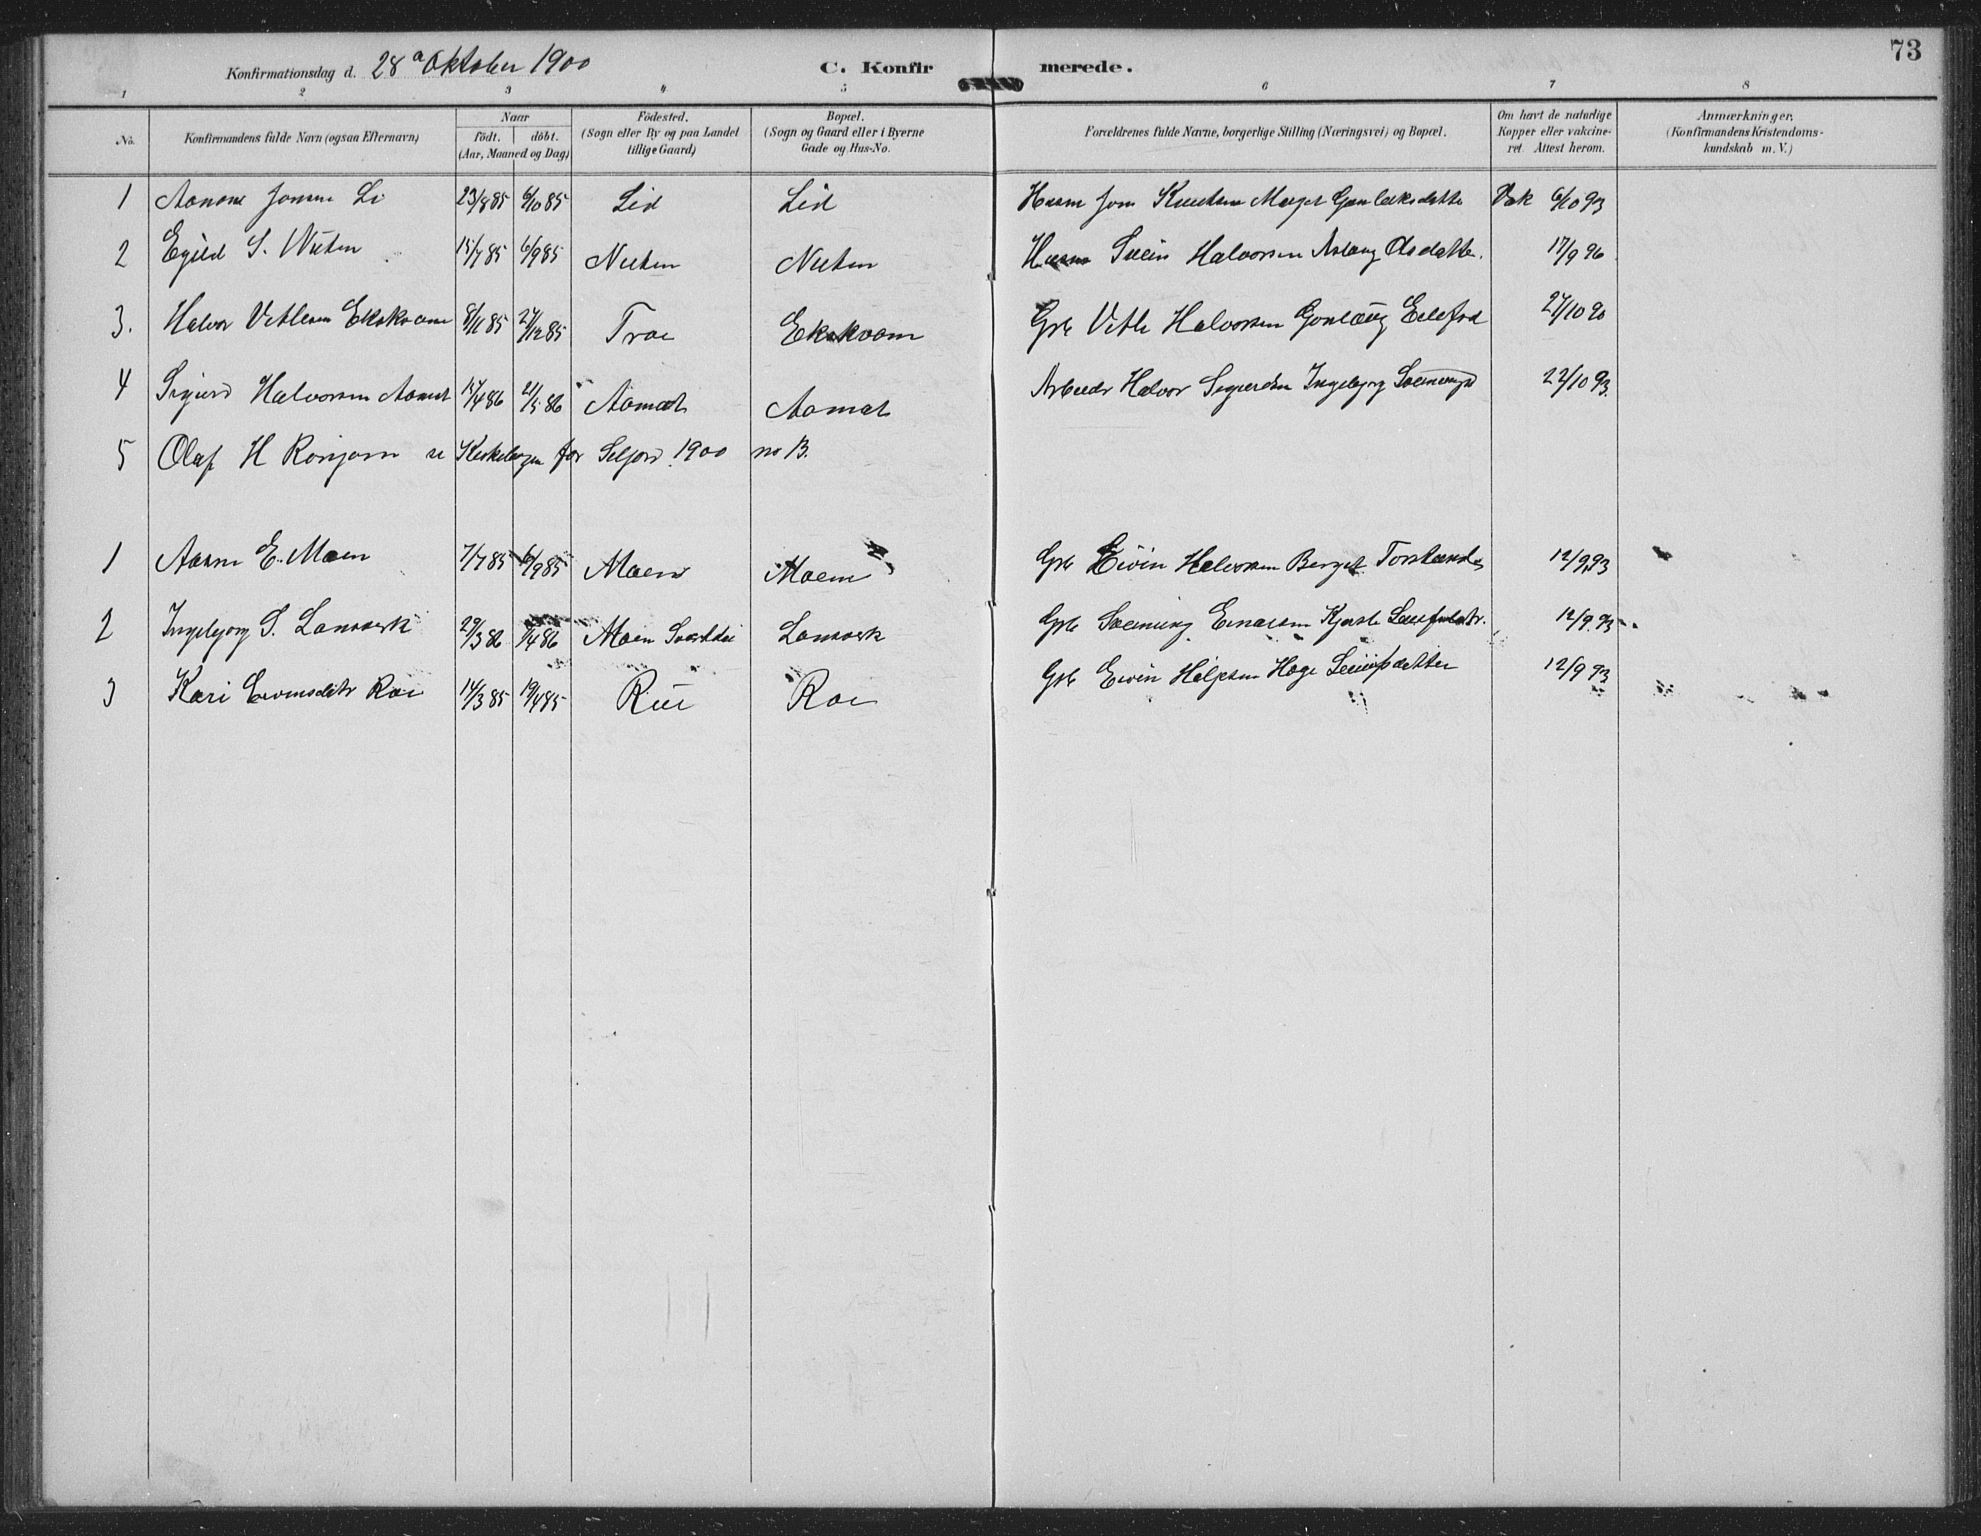 73
Konfirmationsdag d. 28 Oktober 1900 C. Konfirmerede.
1 2 3 4 5 6 7 8
No. Konfirmandens fulde Navn (ogsaa Efternavn) Naar født. døbt. (Aar, Maaned og Dag) Fødested. (Sogn eller By og paa Landet tillige Gaard) Bopæl. (Sogn og Gaard eller i Byerne Gade og Hus-No. Forældrenes fulde Navne, borgerlige Stilling (Næringsvei) og Bopæl. Om havt de naturlige Kopper eller vakcineret. Attest herom. Anmærkninger. (Konfirmandens Kristendomskundskab m. V.)
1 Aanon Jonsen Li 23/8 85 6/10 85 Lid Lid Husm Jon Knutsen Marget Gunleiksdatte Vak 6/10 93
2 Egild S. Nuten 15/7 85 6/9 85 Nuten Nuten Husm Svein Halvorsen Aslaug Olsdatte. 17/9 96
3. Halvor Vetlesen Ekskvam 8/11 85 27/12 85 Trae Ekskvam Grb Vetle Halvorsen Gonlaug 27/10 90
4 Sigurd Halvorsen Aamot 15/4 86 21/5 86 Aamot Aamot Arbeider Halvor Sigurdsen Ingebjorg 22/10 93.
5 Olaf H Ronjom se Kirkebogen for Seljord 1900 no 13.
1 Aasne E. Moen 7/7 85 6/9 85 Moen Moen Grb Eivin Halvorsen Berget 12/9 93
2 Ingebjorg S. Lonverk 29/3 86 /4 86 Moen Svartdal Lonverk Grb Sveinung Einarsen Kjersti 12/9 93
3 Kari Eivinsdtr Roe 14/3 85 19/4 85 Rue Roe Grb Eivin Helgesen Hæge Leiufsdatter 12/9 93